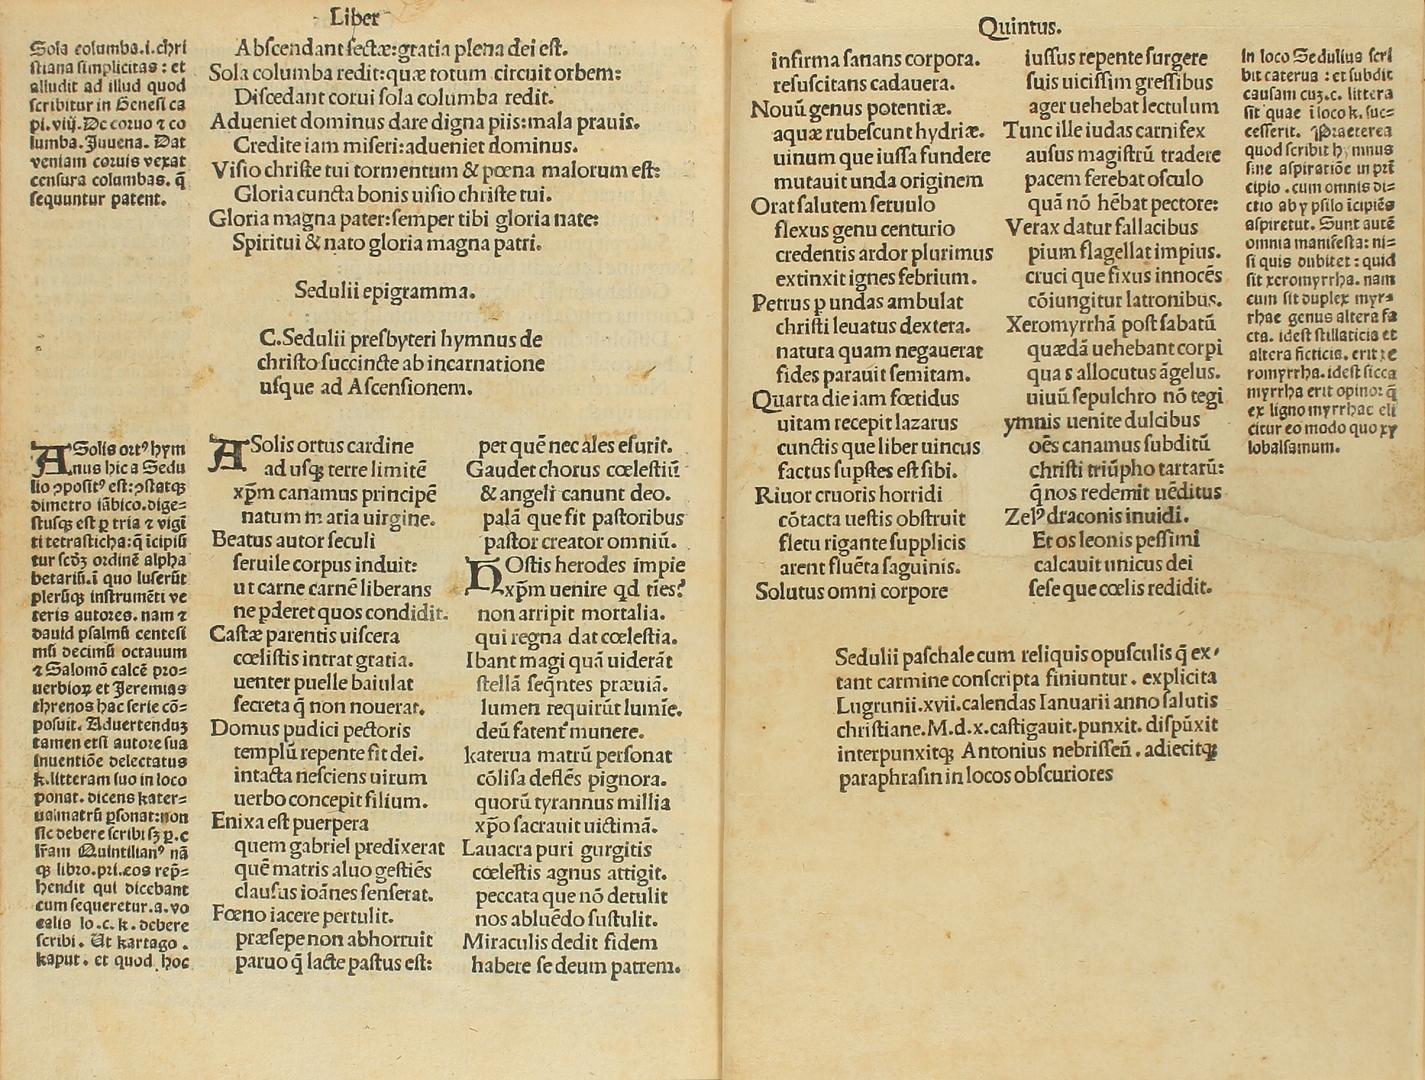 Liber
Sola columba.i.chri
stiana simplicitas : et
alludit ad illud quod
scribitur in Genesi ca
pi.viij. De coruo ⁊ co
lumba. Juuena. Dat
veniam coruis vexat
censura columbas. q̄
sequuntur patent.
Abscendant sectæ:gratia plena dei est.
Sola columba redit:quæ totum circuit orbem:
Discedant corui sola columba redit.
Adueniet dominus dare digna piis:mala prauis.
Credite iam miseri:adueniet dominus.
Visio christe tui tormentum & pœna malorum est:
Gloria cuncta bonis uisio christe tui.
Gloria magna pater:semper tibi gloria nate:
Spiritui & nato gloria magna patri.
Sedulii epigramma.
C.Sedulii presbyteri hymnus de
christo succincte ab incarnatione
usque ad Ascensionem.
A Solis ortꝰ hym
nus hic a Sedu
lio ꝯpositꝰ est:ꝯstatqꝫ
dimetro iābico.dige=
stusqꝫ est ꝑ tria ⁊ vigī
ti tetrasticha:q̄ īcipiū
tur scd̄ꝫ ordinē alpha
betariū.ī quo luserūt
plerūqꝫ instrumēti ve
teris autores. nam ⁊
dauid psalmū centesi
mū decimū octauum
⁊ Salomō calcē pro=
uerbioꝝ et Jeremias
threnos hac serie cō=
posuit. Aduertenduꝫ
tamen etsi autore sua
inuentiōe delectatus
k.litteram suo in loco
ponat. dicens kater=
ua matrū ꝑsonat:non
sic debere scribi sꝫ ꝑ.c
lr̄am Quintilianꝰ nā
qꝫ libro.pri.eos rep̄=
hendit qui dicebant
cum sequeretur.a.vo
calis lo.c.k.debere
scribi. Ut kartago.
kaput. et quod hoc
A Solis ortus cardine
ad usqꝫ terre limitē
xp̄m canamus principē
natum maria uirgine.
Beatus autor seculi
seruile corpus induit:
ut carne carnē liberans
ne pderet quos condidit.
Castæ parentis uiscera
cœlistis intrat gratia.
uenter puelle baiulat
secreta q̄ non nouerat.
Domus pudici pectoris
templū repente fit dei.
intacta nesciens uirum
uerbo concepit filium.
Enixa est puerpera
quem gabriel predixerat
quē matris aluo gestiēs
clausus ioānes senserat.
Fœno iacere pertulit.
præsepe non abhorruit
paruo q̄ lacte pastus est:
per quē nec ales esurit.
Gaudet chorus cœlestiū
& angeli canunt deo.
palā que fit pastoribus
pastor creator omniū.
HOstis herodes impie
xp̄m uenire qd ties?
non arripit mortalia.
qui regna dat cœlestia.
Ibant magi quā uiderāt
stellā seq̄ntes præuiā.
lumen requirūt lumīe.
deū fatent munere.
katerua matrū personat
cōlisa deflēs pignora.
quorū tyrannus millia
xp̄o sacrauit uictimā.
Lauacra puri gurgitis
cœlestis agnus attigit.
peccata que nō detulit
nos abluēdo sustulit.
Miraculis dedit fidem
habere se deum patrem.
Quintus.
infirma sanans corpora.
resuscitans cadauera.
Nouū genus potentiæ.
aquæ rubescunt hydriæ.
uinum que iussa fundere
mutauit unda originem
Orat salutem seruulo
flexus genu centurio
credentis ardor plurimus
extinxit ignes febrium.
Petrus p undas ambulat
christi leuatus dextera.
natura quam negauerat
fides parauit semitam.
Quarta die iam fœtidus
uitam recepit lazarus
cunctis que liber uincus
factus supstes est sibi.
Riuor cruoris horridi
cōtacta uestis obstruit
fletu rigante supplicis
arent fluēta sāguinis.
Solutus omni corpore
iussus repente surgere
suis uicissim gressibus
ager uehebat lectulum
Tunc ille iudas carnifex
ausus magistrū tradere
pacem ferebat osculo
quā nō hēbat pectore:
Verax datur fallacibus
pium flagellat impius.
cruci que fixus innocēs
cōiungitur latronibus.
Xeromyrrhā post sabatū
quædā uehebant corpi
quas allocutus āgelus.
uiuū sepulchro nō tegi
ymnis uenite dulcibus
oēs canamus subditū
christi triūpho tartarū:
q̄ nos redemit uēditus
Zelꝰ draconis inuidi.
Et os leonis pessimi
calcauit unicus dei
sese que cœlis redidit.
In loco Sedulius scri
bit caterua : et subdit
causam cuꝫ.c. littera
sit quae ī loco k. suc=
cesserit. Praeterea
quod scribit hymnus
sine aspiratiōe in prī
cipio.cum omnis di=
ctio ab y psilo īcipiēs
aspiretur. Sunt autē
omnia manifesta: ni=
si quis dubitet : quid
sit xeromyrrha. nam
cum sit duplex myr=
rhae genus altera fa
cta. idest stillaticia et
altera ficticia. erit xe
romyrrha. idest sicca
myrrha erit opinor q̄
ex ligno myrrhae eli
citur eo modo quo xy
lobalsamum.
Sedulii paschale cum reliquis opusculis q̄ ex
tant carmine conscripta finiuntur. explicita
Lugrunii.xvii.calendas Ianuarii anno salutis
christiane.M.d.x.castigauit.punxit. dispūxit
interpunxitqꝫ Antonius nebrisseñ. adiecitqꝫ
paraphrasin in locos obscuriores